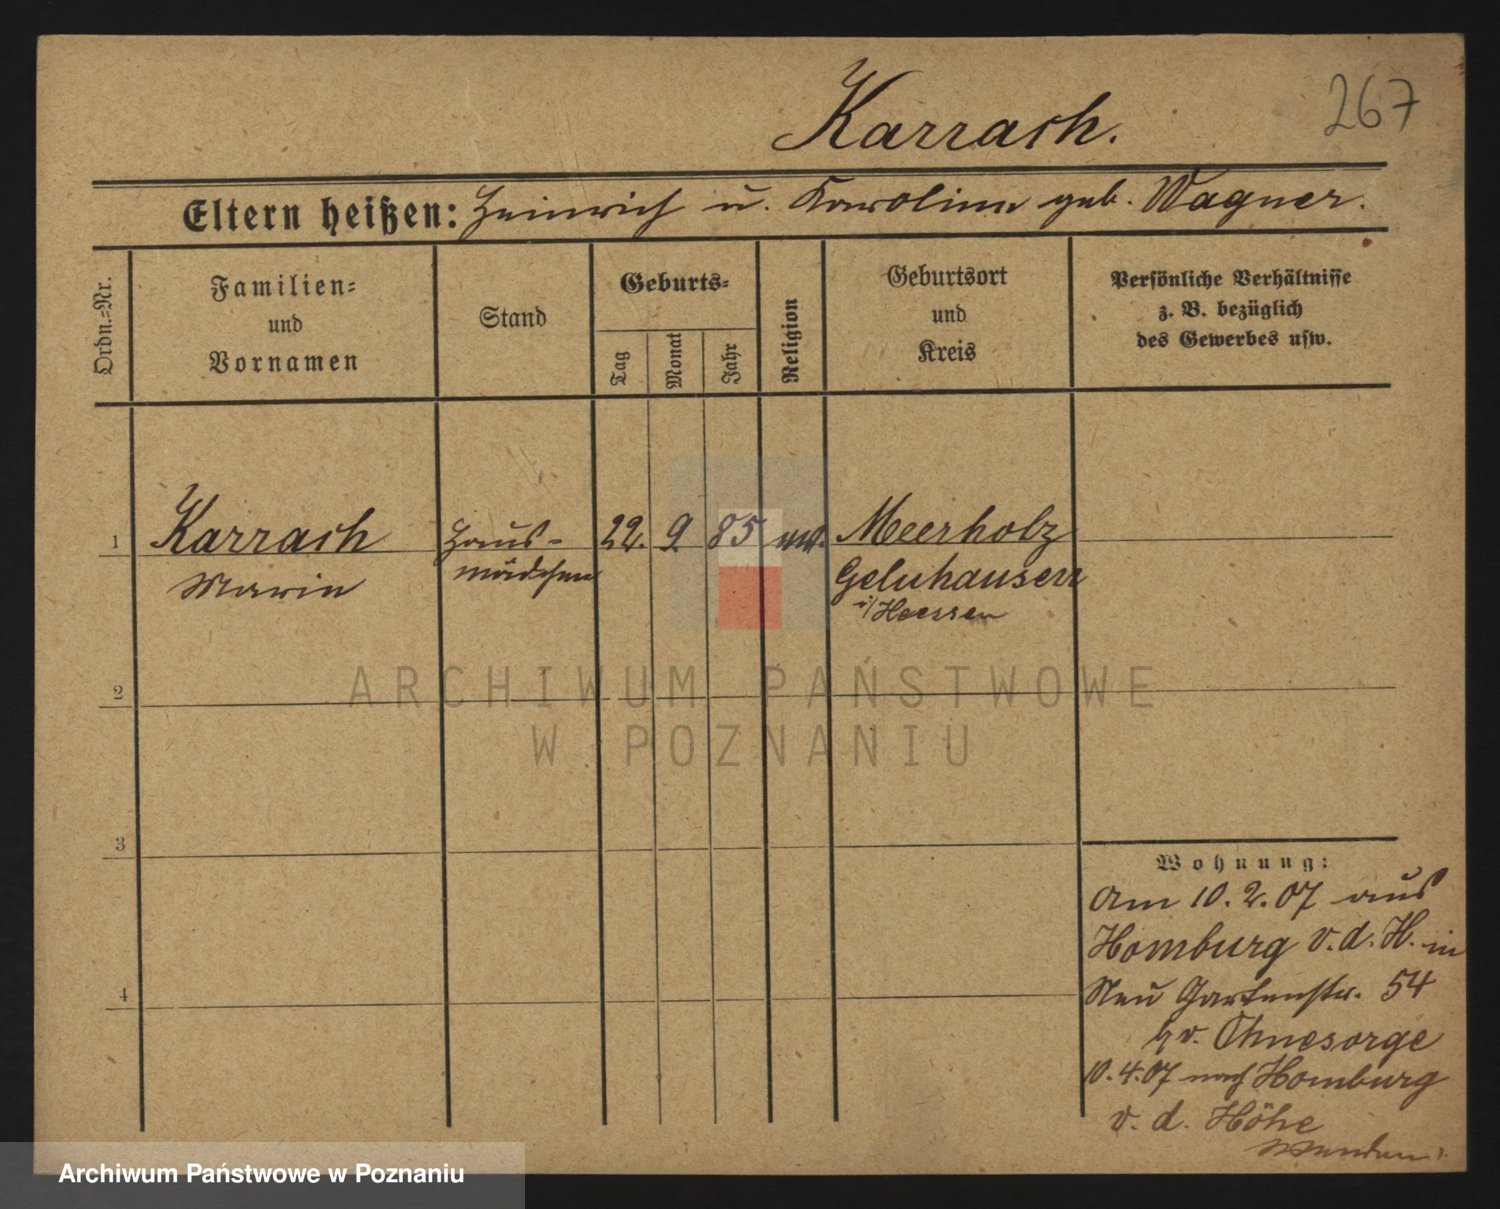 267
Karrach.
Eltern heißen: Heinrich u. Karoline geb. Wagner.
Ordn.-Nr.
Familien-
und
Vornamen
Stand
Geburts-
Tag
Monat
Jahr
Religion
Geburtsort
und
Kreis
Persönliche Verhältnisse
z. B. bezüglich
des Gewerbes usw.
1
Karrach
Marie
Haus-
mädchen
22.
9
85
ev.
Meerholz
Gelnhausen
i/Hessen
2
3
4
Wohnung:
Am 10.2.07 aus
Homburg v.d.H. in
Neu Gartenstr. 54
Ohnesorge
10.4.07 nach Homburg
v. d. Höhe
Wenden!
ARCHIWUM PAŃSTWOWE
W POZNANIU
Archiwum Państwowe w Poznaniu